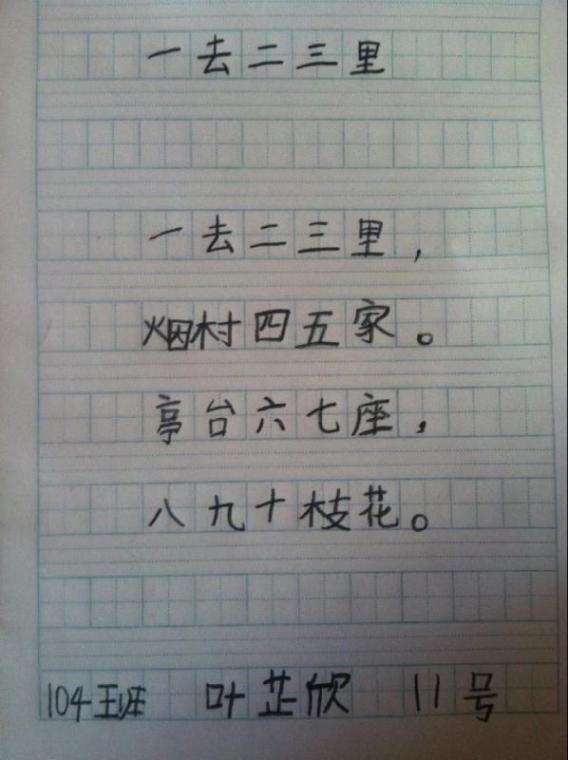 一去二三里
一去二三里，
烟村四五家。
亭台六七座，
八九十枝花。
104班 叶芷欣 11号